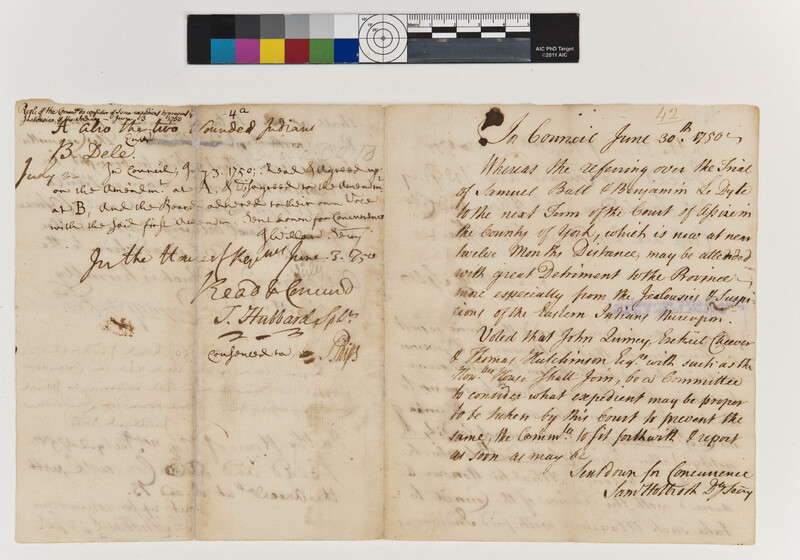 AIC PhD Target
©2011 AIC
4a
A also the two Wounded Indians
B. Dele.
In Council, July 3. 1750; Read & Agreed up
on the Amendmt. at A, & Disagreed to the Amendmt
at B, And the Board adhered to their own Vote
with the said first Amendmt. Sent down for Concurrence
J Willard Secry
In the House of Repives June. 3. 1750
July
Read & Concurd
T. Hubbard Spkr.
Consented to
S Phips
42
In Council June 30th. 1750
Whereas the referring over the Trial
of Samuel Ball & Benjamin Le Dyte
to the next Term of the Court of Assize in
the County of York, which is now at near
twelve Months Distance, may be attended
with great Detriment to the Province
more especially from the Jealousies & Suspi
cions of the Eastern Indians thereupon.
Voted that John Quincy, Ezekiel Cheever
& Thomas Hutchinson Esqrs with such as the
Honble House shall Join, be a Committee
to consider what expedient may be proper
to be taken by this Court to prevent the
same, the Commtte to sit forthwith & report
as soon as may be
Sent down for Concurrence
Saml Holbrook Dy Secry